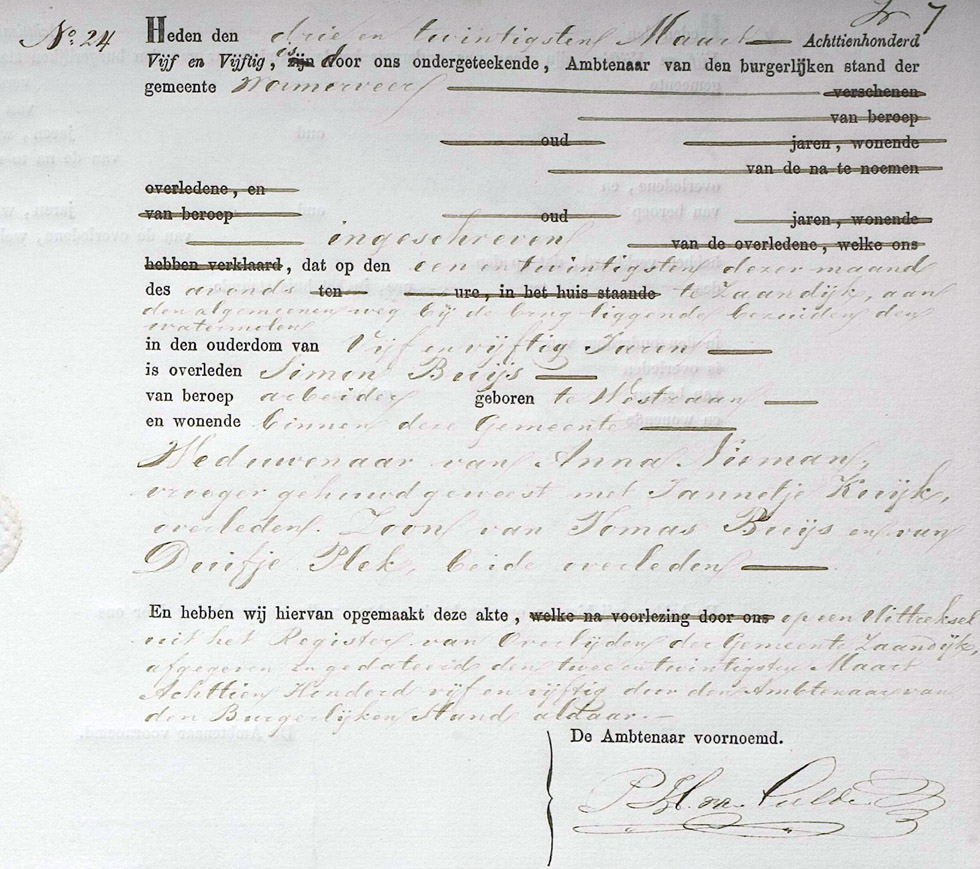 No. 24
7
Heden den drie en twintigsten Maart Achttienhonderd
Vijf en Vijftig, zijn is door ons ondergeteekende, Ambtenaar van den burgerlijken stand der
gemeente Wormerveer verschenen
van beroep
oud jaren, wonende
van de na te noemen
overledene, en
van beroep oud jaren, wonende
ingeschreven van de overledene, welke ons
hebben verklaard, dat op den een en twintigsten dezer maand
des avonds ten ure, in het huis staande te Zaandijk, aan
den algemeenen weg bij de brug liggende bezuiden den
watermolen
in den ouderdom van Vijf en vijftig Jaren
is overleden Simon Buijs
van beroep arbeider geboren te Westzaan
en wonende binnen deze Gemeente
Weduwenaar van Anna Nieman,
vroeger gehuwd geweest met Jannetje Kuijk,
overleden. Zoon van Tomas Buijs en van
Duifje Plek, beide overleden
En hebben wij hiervan opgemaakt deze akte, welke na voorlezing door ons op een Uittreksel
uit het Register van Overlijden der Gemeente Zaandijk,
afgegeven en gedateerd den twee en twintigsten Maart
Achttien Honderd vijf en vijftig door den Ambtenaar van
den Burgerlijken Stand aldaar.
De Ambtenaar voornoemd.